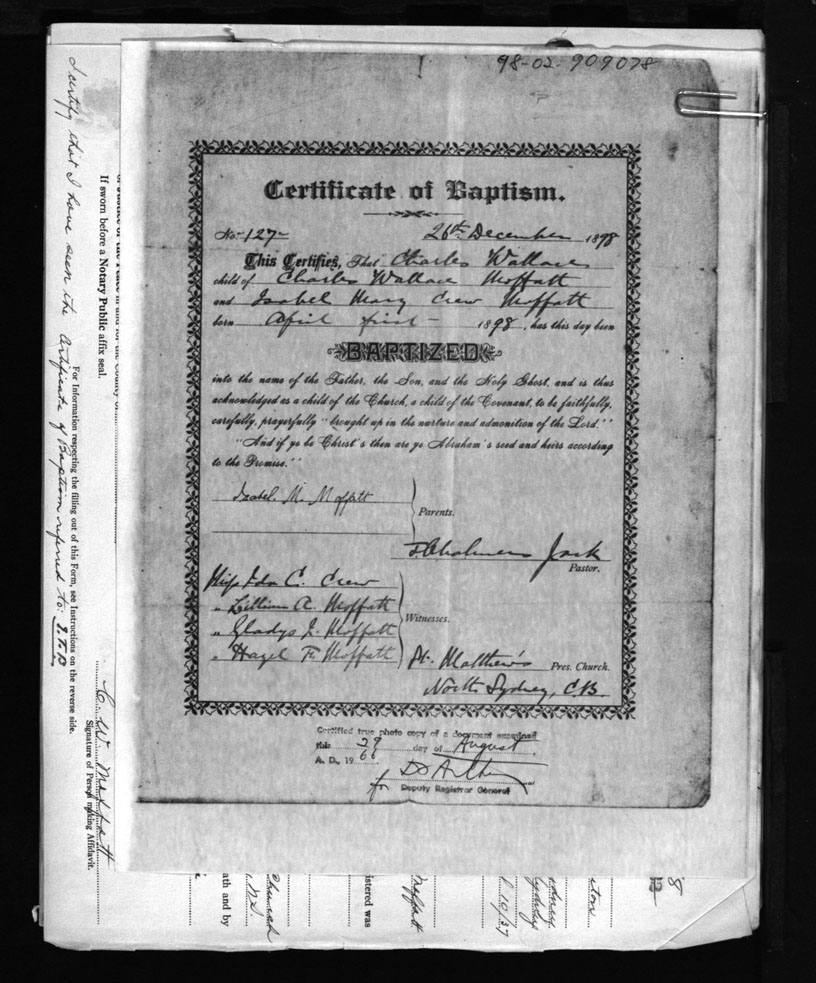 98-02-909078
Certificate of Baptism.
No. 127 26th December 1898
This Certifies, That Charles Wallace
child of Charles Wallace Moffatt
and Isabel Mary Crew Moffatt
born April first 1898, has this day been
BAPTIZED
into the name of the Father, the Son, and the Holy Ghost, and is thus
acknowledged as a child of the Church, a child of the Covenant, to be faithfully,
carefully, prayerfully "brought up in the nurture and admonition of the Lord."
"And if ye be Christ's then are ye Abraham's seed and heirs according
to the Promise."
Isabel. M. Moffatt
Parents.
Jack
Pastor.
Miss Ida C. Crew
" Lillian A. Moffatt
" Gladys J. Moffatt
" Hazel F. Moffatt
Witnesses.
St. Matthew's Pres. Church.
North Sydney, C.B.
Certified true photo copy of a document examined
this 29 day of August
A. D., 1966
for Deputy Registrar General
I certify that I have seen the Certificate of Baptism referred to:
If sworn before a Notary Public affix seal.
For Information respecting the filling out of this Form, see Instructions on the reverse side.
C. W. Moffatt
Signature of Person making Affidavit.
ath and by
istered was
Moffatt
Church
N.S.